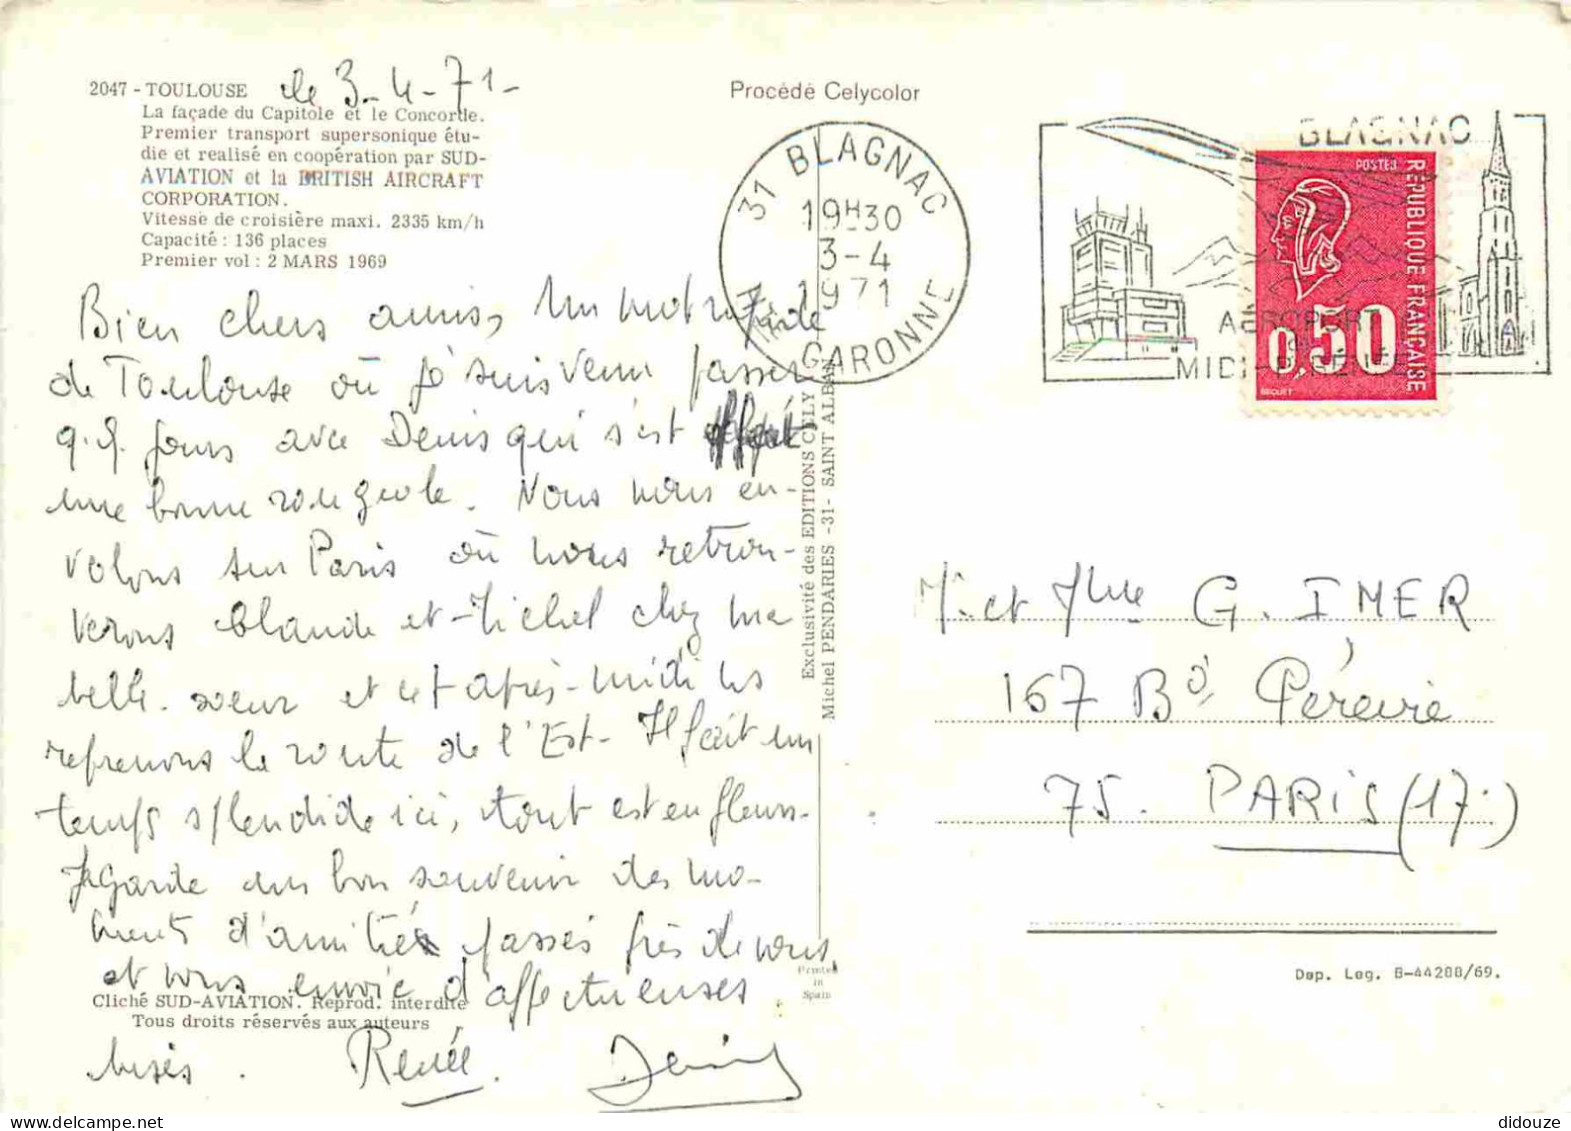 2047 - TOULOUSE le 3-4-71-
La façade du Capitole et le Concorde.
Premier transport supersonique étu-
die et realisé en coopération par SUD-
AVIATION et la BRITISH AIRCRAFT
CORPORATION.
Vitesse de croisière maxi. 2335 km/h
Capacité : 136 places
Premier vol : 2 MARS 1969
Bien chers amis, Un mot rapide
de Toulouse où je suis venu passer
q.q. jours avec Denis qui s'est
une bonne rougeole. Nous nous en-
volons sur Paris où nous retrou-
verons Claude et Michel chez ma
belle-sœur et cet après-midi
reprenons la route de l'Est- Il fait un
temps splendide ici, tout est en fleurs-
Je garde un bon souvenir des mo-
ments d'amitié passés près de vous,
et vous envoie d'affectueuses
bises. Renée. Denis
Cliché SUD-AVIATION. Reprod. interdite
Tous droits réservés aux auteurs
Procédé Celycolor
Exclusivité des EDITIONS CELY
Michel PENDARIES -31- SAINT ALBAN
Printed
in
Spain
31 BLAGNAC
19H30
3-4
1971
GARONNE
BLAGNAC
AÉROPORT
MIDI-PYRÉNÉES
POSTES
RÉPUBLIQUE FRANÇAISE
0,50
BEQUET
M. et Mme G. IMER
167 Bd Péreire
75. PARIS (17.)
Dep. Leg. B-44288/69.
didouze